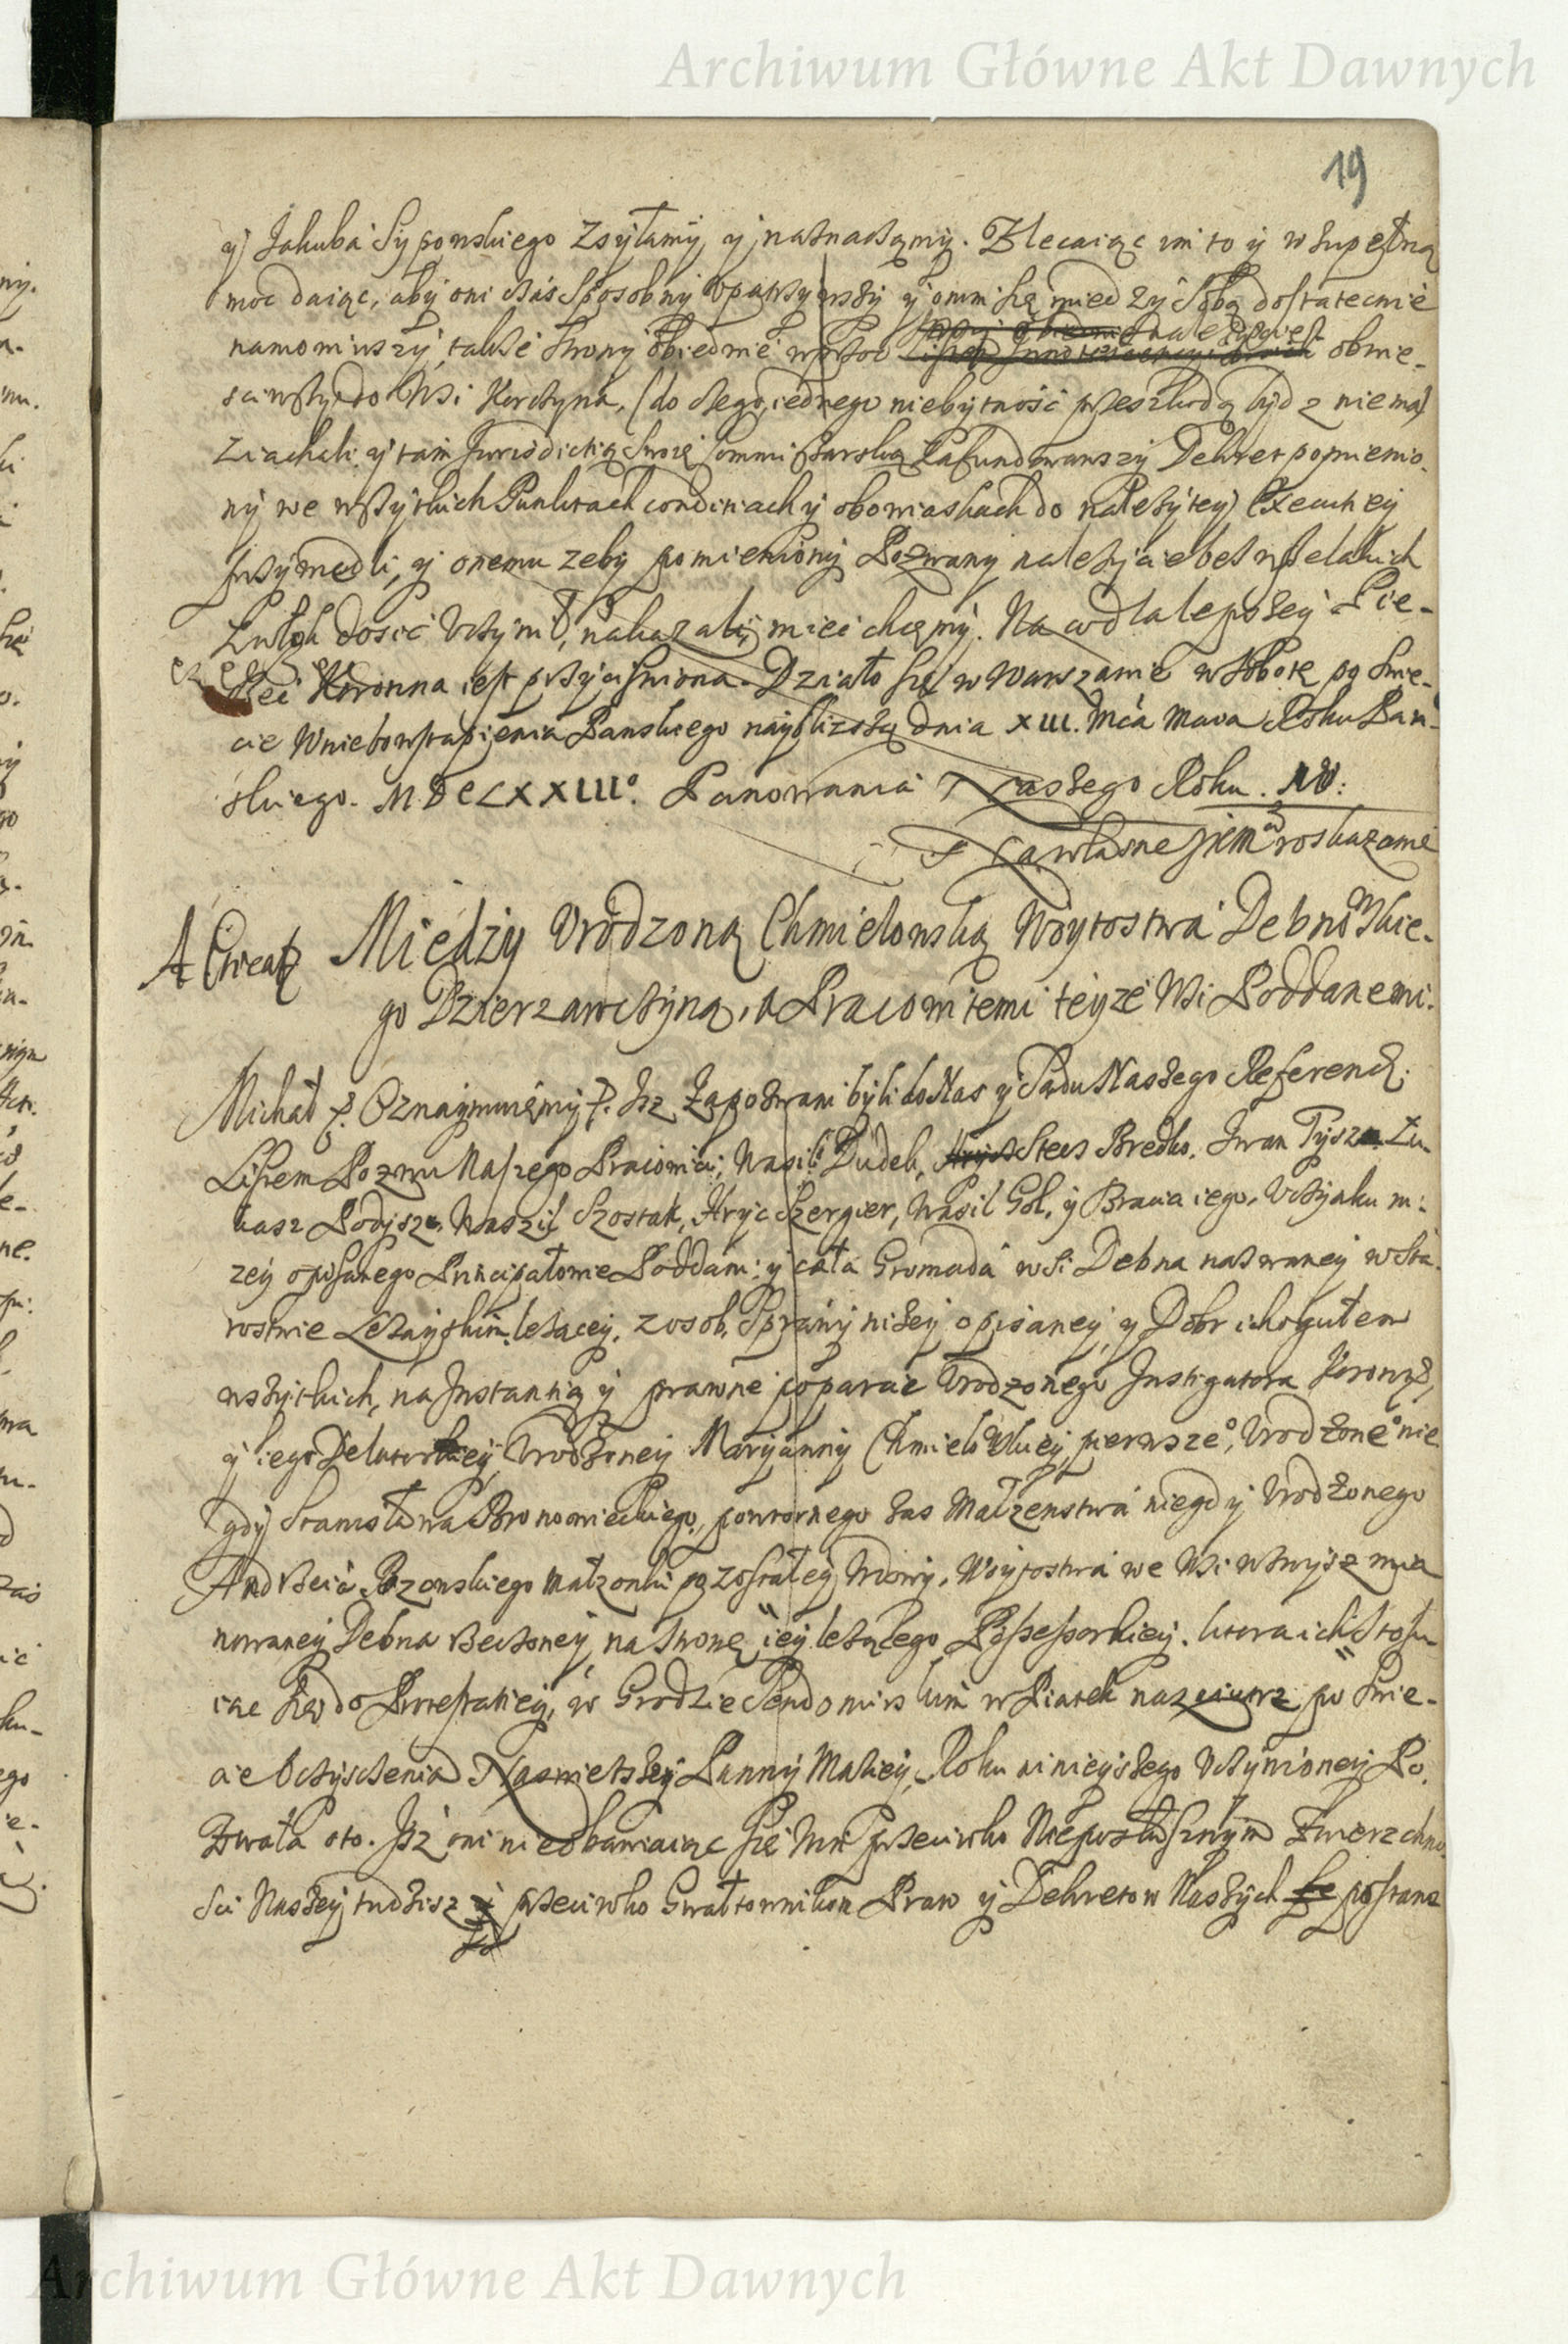 Archiwum Główne Akt Dawnych
19
y Jakuba Sy ponskiego Zsyłamy y naznaczamy. Zlecaiąc im to y w zupełną
moc daiąc, aby oni czas sposobny upatrzywszy y onim się między Sobą dostatecznie
namowiwszy, także strony obiedwie wprzod należycie obwie-
sciwszy do Wsi Korczyna, (do czego iednego niebytność przeszkodą bydz nie ma)
Ziachali y tam Jurisdictią swoię Commissarską Zafundowawszy Dekret pomienio-
ny we wszytkich Punktach conditiach y obowiaskach do należytey Executiey
przywiedli, y onemu zeby pomieniony Pozwany należycie bez wszelakich
Zwłok dosić uczynił, nakazali miec chcemy. Na co dla lepszey Pie-
częci Koronna iest przycisniona. Działo się w Warszawie w Sobotę po Swie-
cie Wniebowstąpienia Panskiego naybliższą dnia XIII. Mca Maia Roku Pan-
skiego. M.DCLXXIIIo. Panowania Naszego Roku. IV:
Na własne JKM roskazanie
A Cireaz Między Urodzoną Chmielowską Woytostwa Debnowskie-
go Dzierzawczyną, A Pracowitemi teyże Wsi Poddanemi.
Michał p. Oznaymuiemy p. Isz Zapozwani byli do Nas y Sądu Naszego Referend.
Listem Pozwu Naszego Pracowici; Wasil Dudek, Stecs Bredko. Iwan Tysz Łu-
kasz Podysz, Waszil Szostak, Hryc Szergier, Wasil Gół, y Bracia iego, Uczynku ni:
zey opisanego Principałowie Poddani: y cała Gromada wsi Debna nazwaney w Sta-
rostwie Leżayskim leżącey, z osob, Sprawy niżey opisaney y Dobr ich ogułem
wszytkich, na Instantią y prawne poparcie Urodzonego Instigatora Koron,
y iego Delatorkiey Urodzoney Maryanny Chmielowskiey pierwszeo, Urodzoneo nie
gdy Stanisława Bronowieckiego, powtornego zas Małżenstwa niegdy Urodzonego
Andrzeia małzonki pozostałey Wdowy, Woytostwa we Wsi wzwysz mia
nowaney Debna rzeczoney, na stronę iey leżącego Possessorkiey. ktora ich Stosu
iąc się do Protestatiey, w Grodzie Sendomirskim w Piątek nazaiutrz po Swie-
cie Oczysczenia Naswiętszey Panny Mariey, Roku ninieyszego Uczynioney Po.
zwała oto. Isz oni nieobawiaiąc się Win przeciwko Nieposłusznym Zwierzchno
sci Naszey tudzisz przeciwko Gwałtownikom Praw y Dekretow Naszych postano
Archiwum Główne Akt Dawnych